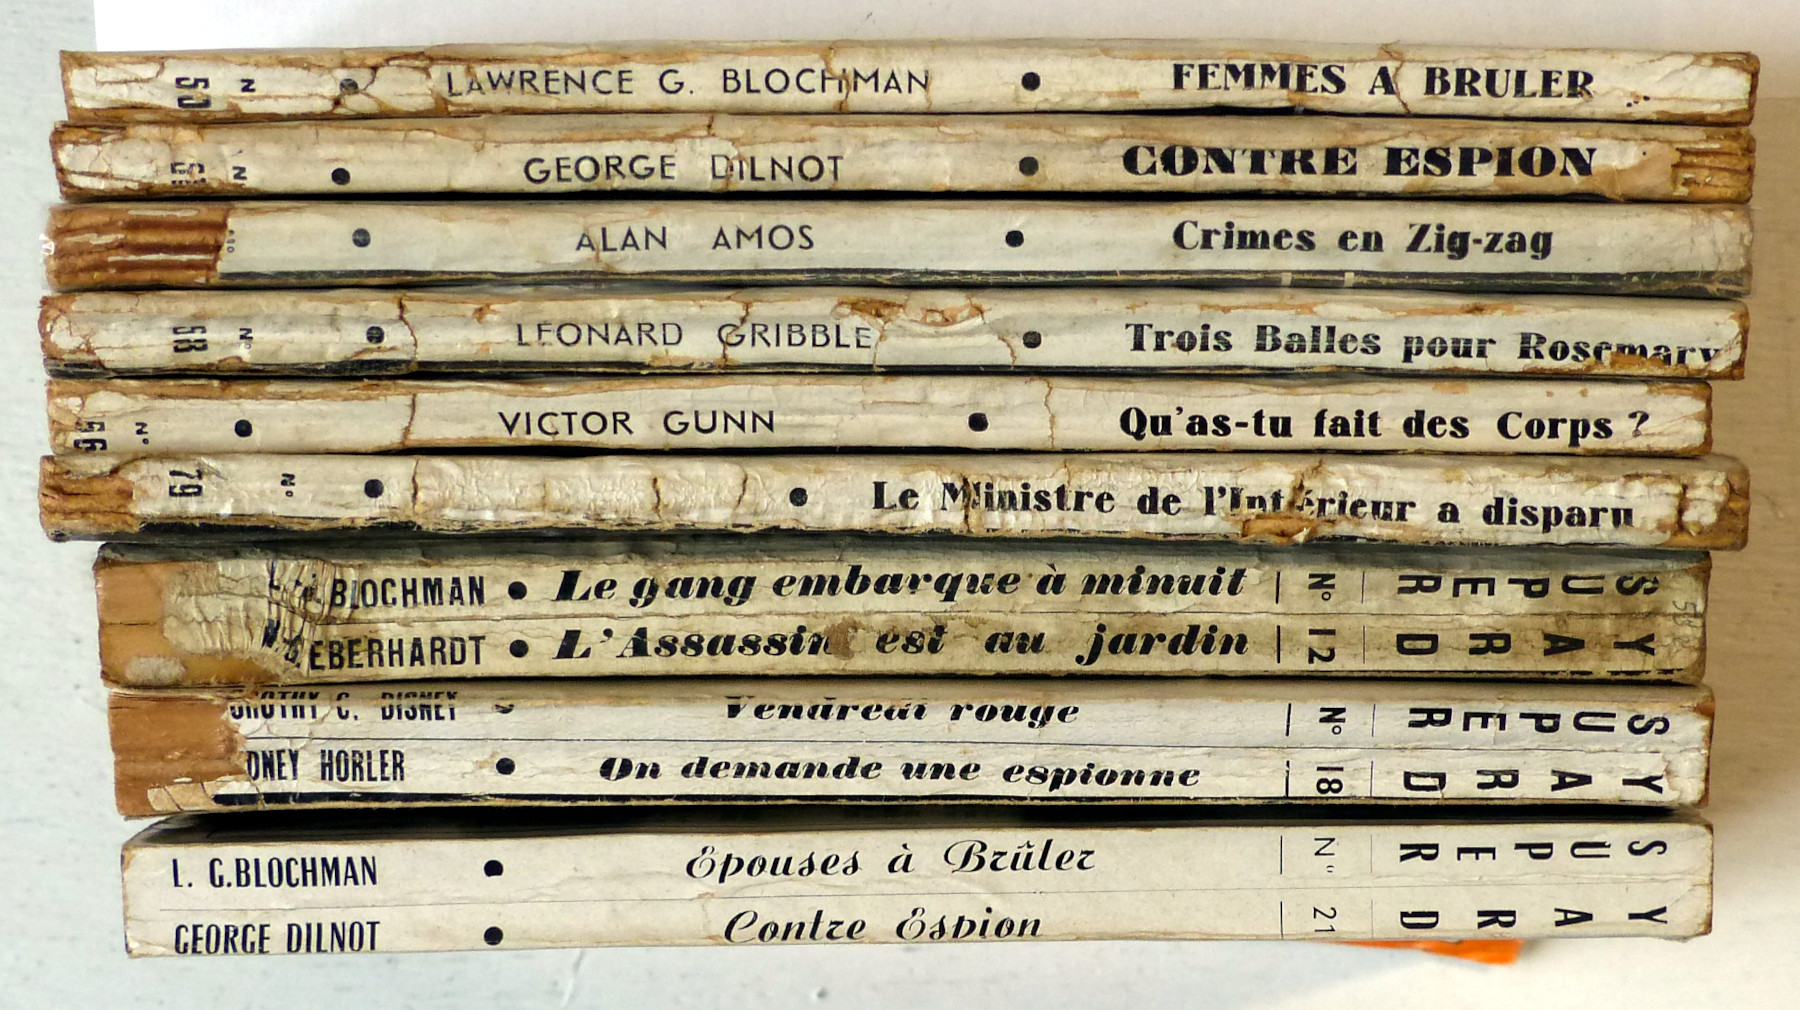 50 N LAWRENCE G. BLOCHMAN • FEMMES A BRULER
N GEORGE DILNOT • CONTRE ESPION
• ALAN AMOS • Crimes en Zig-zag
58 N° • LEONARD GRIBBLE • Trois Balles pour Rosemary
56 N° • VICTOR GUNN • Qu'as-tu fait des Corps ?
79 N° • • Le Ministre de l'Intérieur a disparu
BLOCHMAN • Le gang embarque à minuit N° SUPER
EBERHARDT • L'Assassin est au jardin 12 YARD
DOROTHY C. DISNEY • Vendredi rouge N° SUPER
DNEY HORLER • On demande une espionne 18 YARD
L. G. BLOCHMAN • Epouses à Brûler N° SUPER
GEORGE DILNOT • Contre Espion 21 YARD